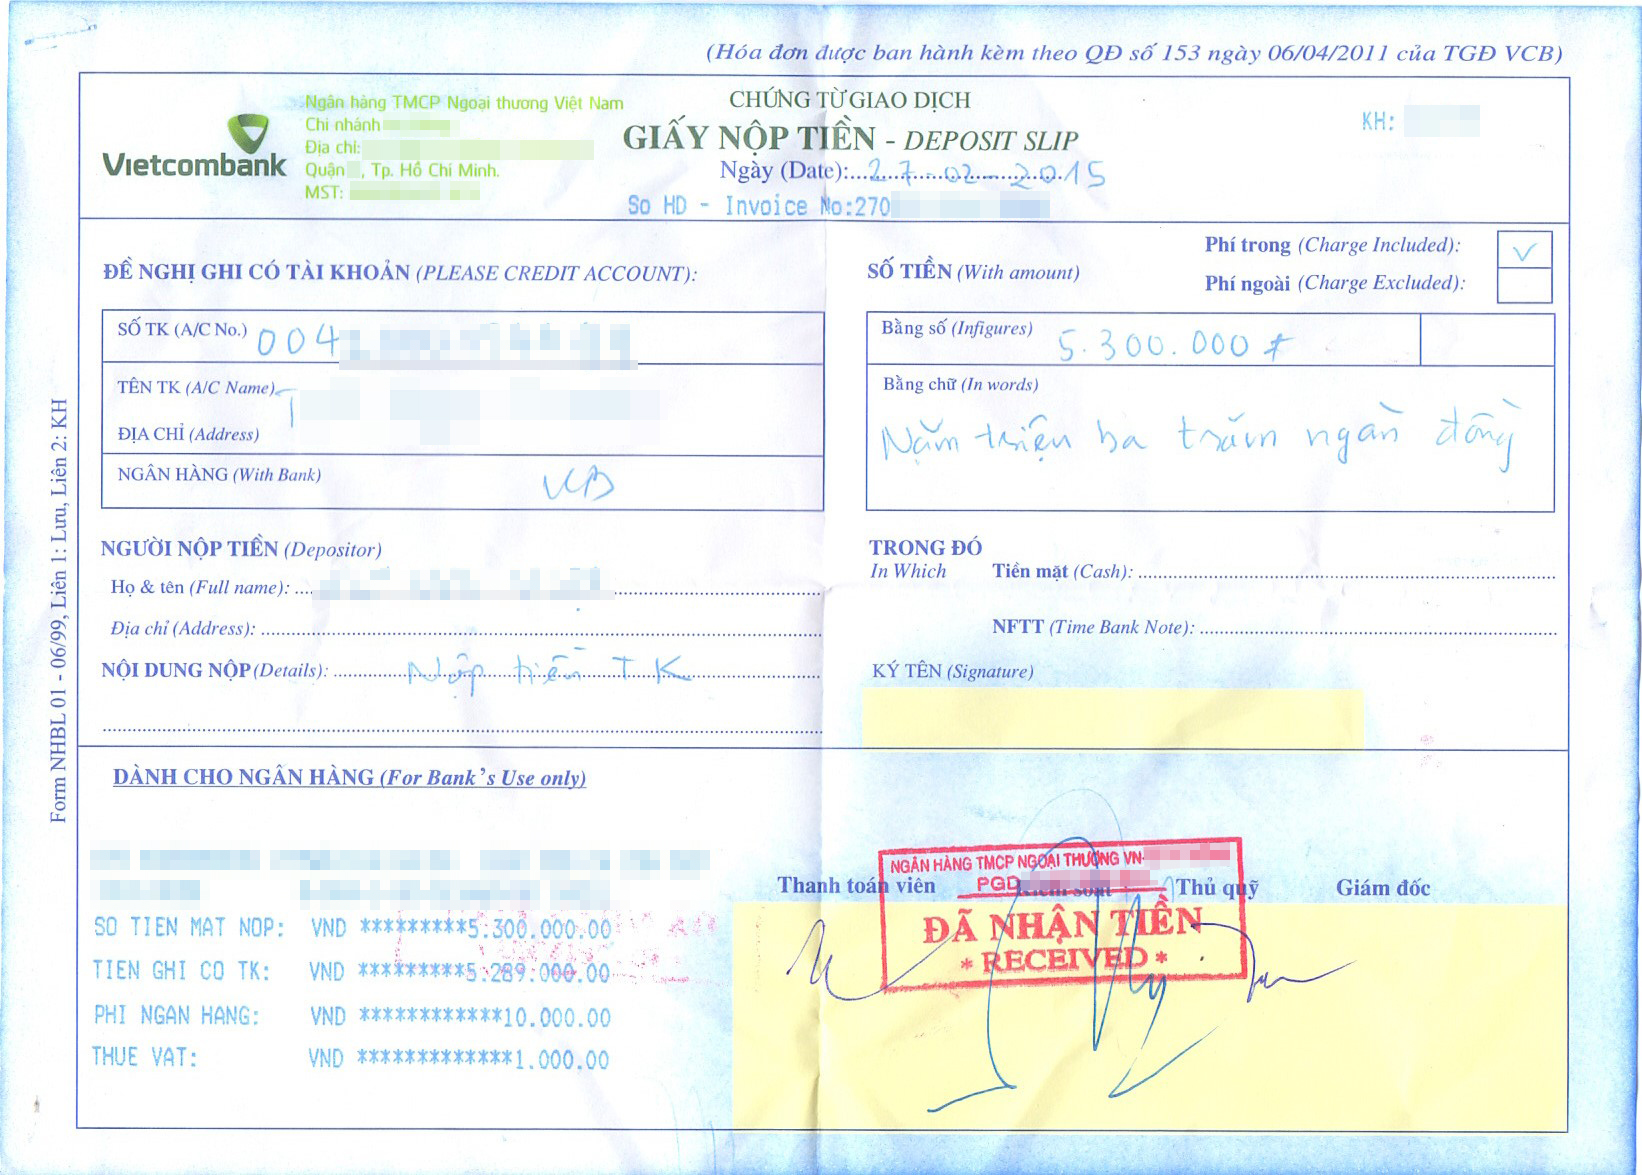 (Hóa đơn được ban hành kèm theo QĐ số 153 ngày 06/04/2011 của TGĐ VCB)
Vietcombank
Ngân hàng TMCP Ngoại thương Việt Nam
Chi nhánh
Địa chỉ:
Quận , Tp. Hồ Chí Minh.
MST:
CHỨNG TỪ GIAO DỊCH
GIẤY NỘP TIỀN - DEPOSIT SLIP
Ngày (Date):...27-02-2015
So HD - Invoice No:270
KH:
ĐỀ NGHỊ GHI CÓ TÀI KHOẢN (PLEASE CREDIT ACCOUNT):
SỐ TK (A/C No.) 004
TÊN TK (A/C Name) T
ĐỊA CHỈ (Address)
NGÂN HÀNG (With Bank) VCB
SỐ TIỀN (With amount)
Phí trong (Charge Included): ✓
Phí ngoài (Charge Excluded):
Bằng số (Infigures) 5.300.000 đ
Bằng chữ (In words)
Năm triệu ba trăm ngàn đồng
NGƯỜI NỘP TIỀN (Depositor)
Họ & tên (Full name):
Địa chỉ (Address):
NỘI DUNG NỘP (Details): Nộp tiền TK
TRONG ĐÓ
In Which
Tiền mặt (Cash):
NFTT (Time Bank Note):
KÝ TÊN (Signature)
Form NHBL 01 - 06/99, Liên 1: Lưu, Liên 2: KH
DÀNH CHO NGÂN HÀNG (For Bank's Use only)
SO TIEN MAT NOP: VND *********5.300.000.00
TIEN GHI CO TK: VND *********5.289.000.00
PHI NGAN HANG: VND ************10.000.00
THUE VAT: VND *************1.000.00
Thanh toán viên
Thủ quỹ
Giám đốc
NGÂN HÀNG TMCP NGOẠI THƯƠNG VN-
PGD
ĐÃ NHẬN TIỀN
* RECEIVED *